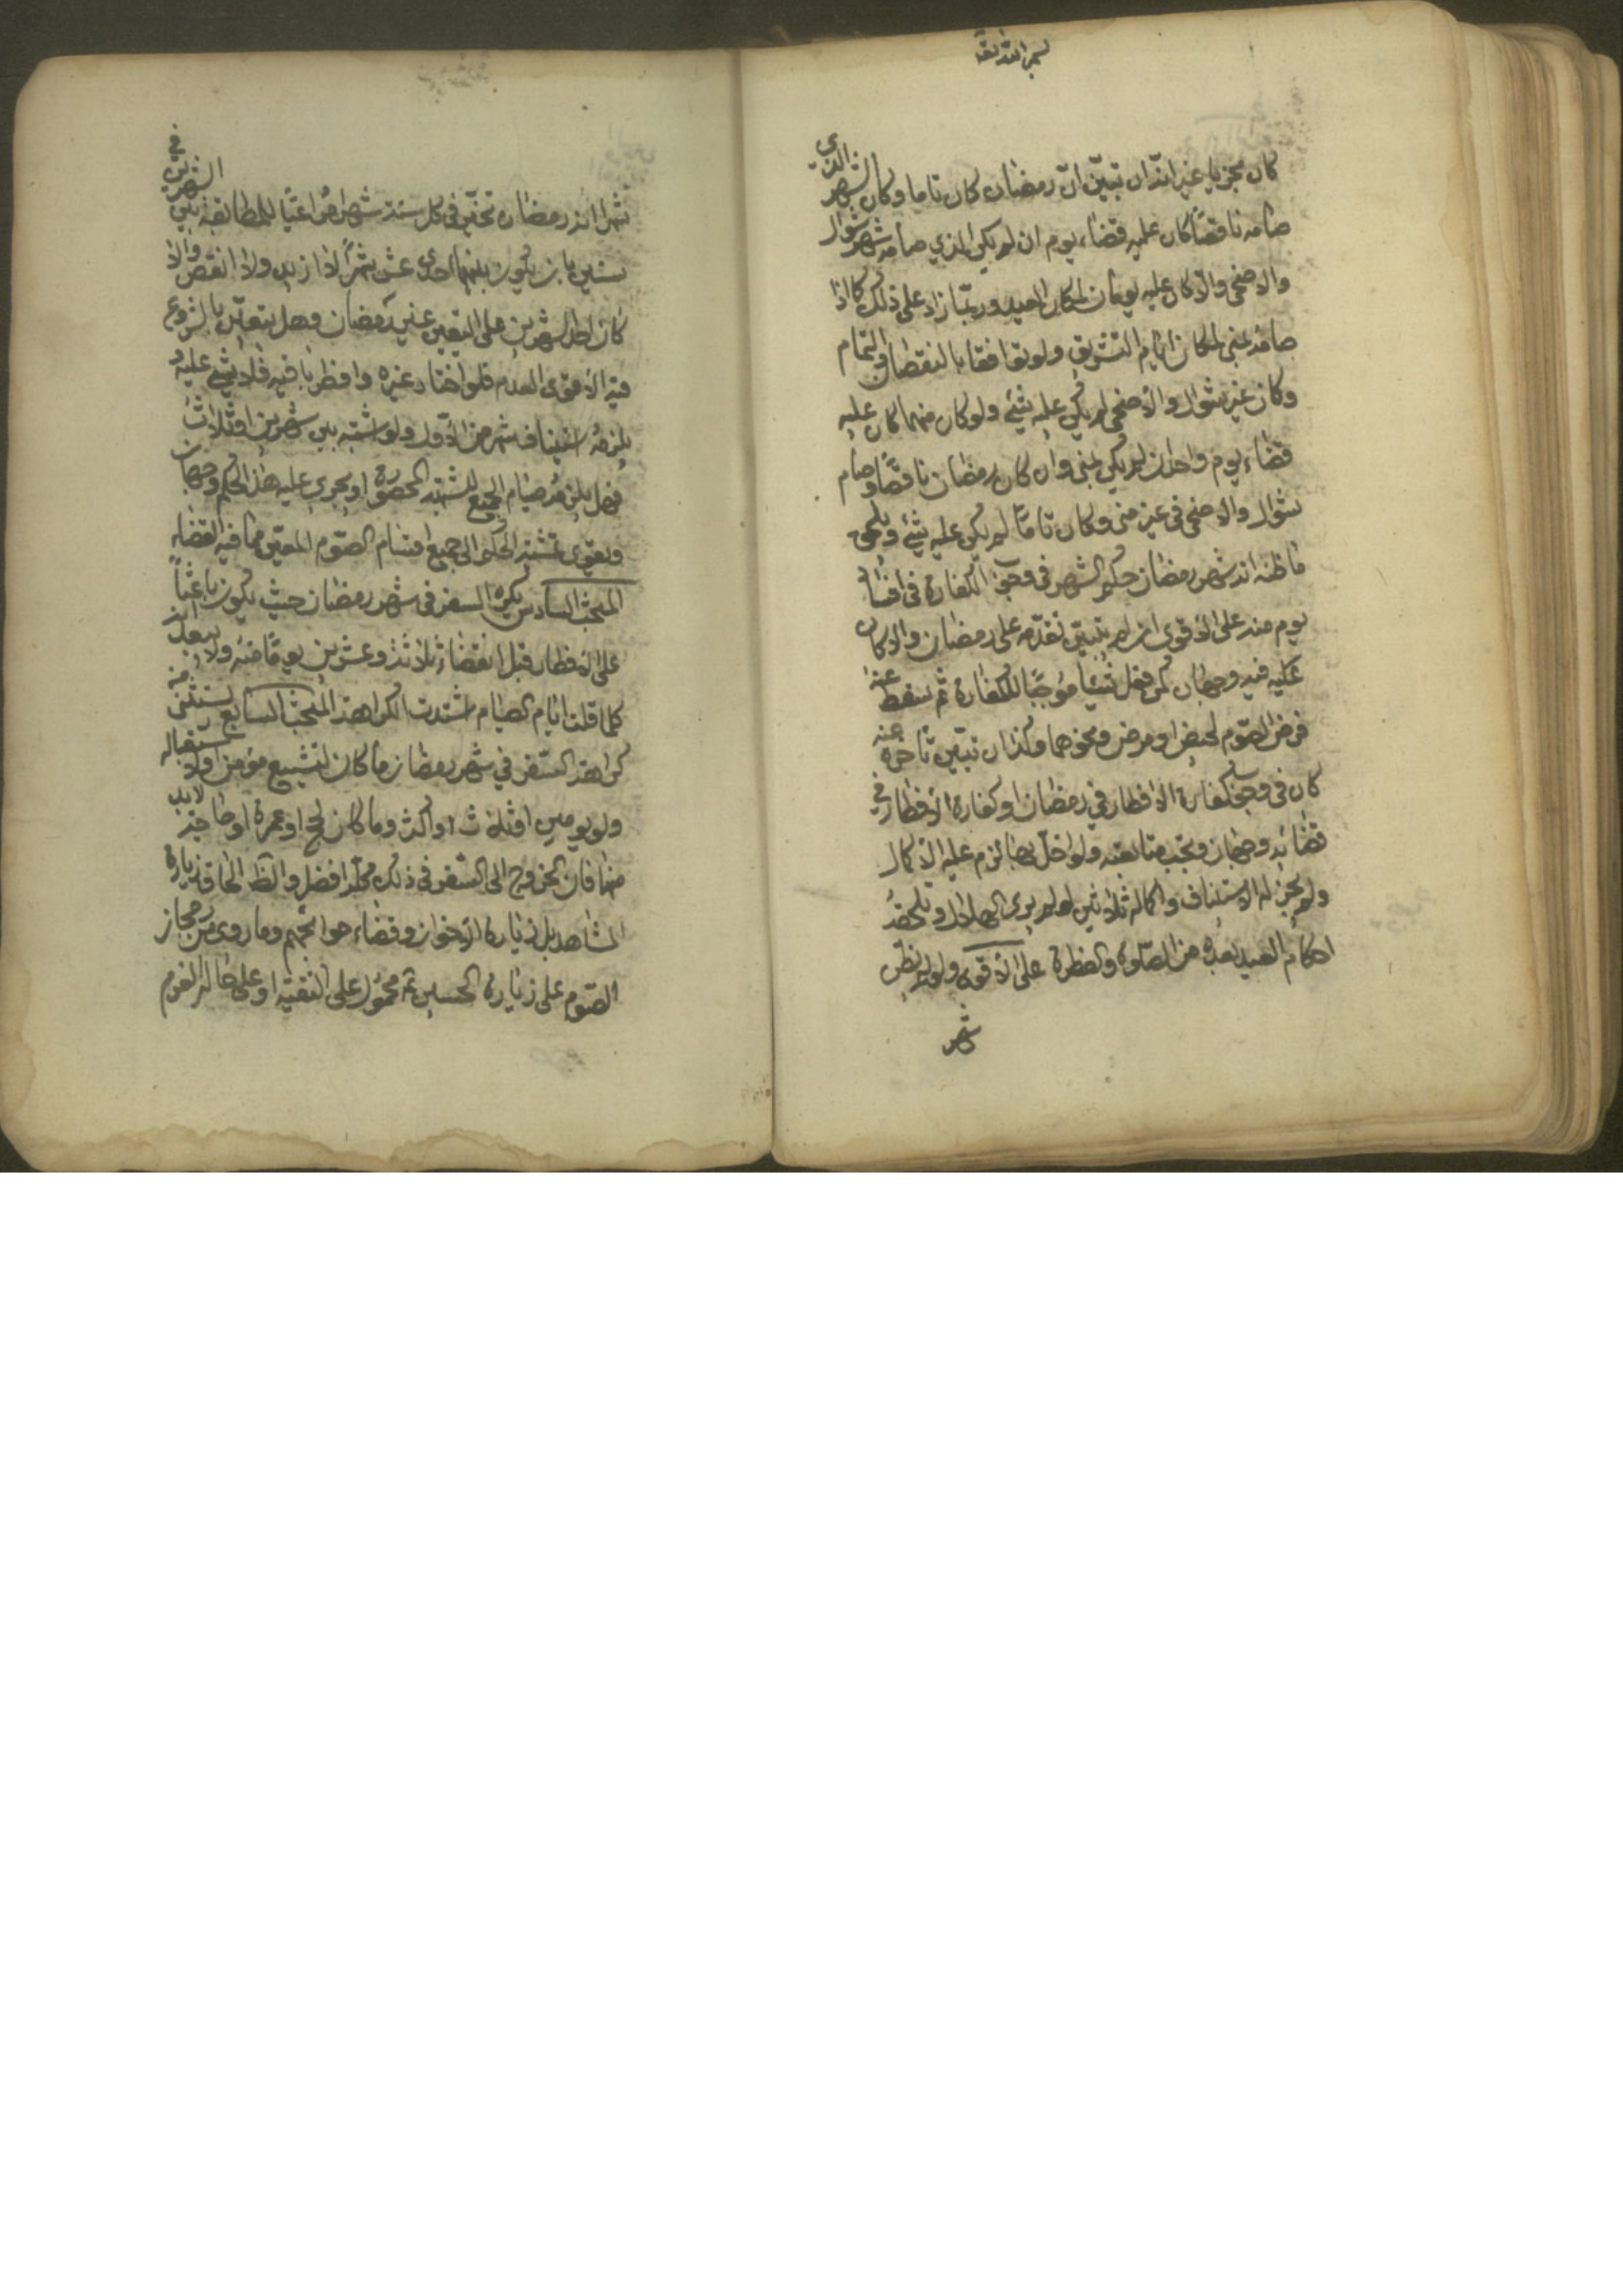 بسم الله ثقة
كان مجزيا غير انّه ان تبيّن انّ رمضان كان تاما وكان الشهر الذي
صامه ناقصًا كان عليه قضاء يوم ان لم يكن الذي صامه شهر شوال
والاضحى والّا كان عليه يومان لمكان العيد وربّما زاد على ذلك كما اذا
صامه بمنى لمكان ايّام التشريق ولو توافقا بالنقصان والتمام
وكان غير شوال والاضحى لم يكن عليه شئ ولو كان منهما كان عليه
قضاء يوم واحد ان لم يكن بمنى وان كان رمضان ناقصًا وصام
شوال والاضحى في غير منى وكان تامًا لم يكن عليه شئ ويلحق
ما ظنه انه شهر رمضان حكم الشهر في وجوب الكفارة في افساد
يوم منه على الاقوى ان لم يتبيّن تقدّمه على رمضان والا كان
عليه فيه وجهان كمن فعل شيئا موجبًا للكفارة ثم سقط عنه
فرض الصّوم لحيض او مرض ونحوهما وكذا ان تبيّن تأخره عنه
كان في وجوب كفارة الافطار في رمضان او كفارة الافطار في
قضائه وجهان ويجب متابعته ولو اخلّ بها لزم عليه الاكمال
ولم يجز له الاستيناف واكماله ثلاثين لو لم ير الهلال وتلحقه
احكام العيد بعده من الصّلوة والفطرة على الاقوى ولو لم يظنّ
شهر
شهرا انه رمضان تخيّر في كل سنة شهرا مراعيًا للمطابقة بين الشهرين في
سنتين بان يكون بينهما احدى عشر شهرًا لا ازيد ولا انقص والا
كان احد الشهرين على اليقين غير رمضان وهل يتعيّن بالشروع
فيه الاقوى العدم فلو اختار غيره وافطر باقيه فلا شئ عليه و
يلزمه استيناف شهر من الاوّل ولو اشتبه بين شهرين او ثلاث
فهل يلزمه صيام الجميع للشبهة المحصورة او يجري عليه هذا الحكم وجهان
ويقوى تمشية الحكم الى جميع اقسام الصّوم المعيّن ممّا فيه القضاء
المبحث السادس يكره السفر في شهر رمضان حيث يكون باعثاً
على الافطار قبل انقضاء ثلاثة وعشرين يومًا منه ولا يبعد انه
كلما قلت ايّام الصيام اشتدت الكراهة المبحث السابع يستثنى من
كراهة السّفر في شهر رمضان ما كان لتشييع مؤمن او لاستقباله
ولو يومين او ثلاث او اكثر وما كان لحج او عمرة او حاجة لابد
منها فان الخروج الى السّفر في ذلك محلّه افضل والظ الحاق زيارة
المشاهد بل زيارة الاخوان وقضاء حوائجهم وما روي من رجحان
الصّوم على زيارة الحسين ع محمول على التقيّة او على حال العزم